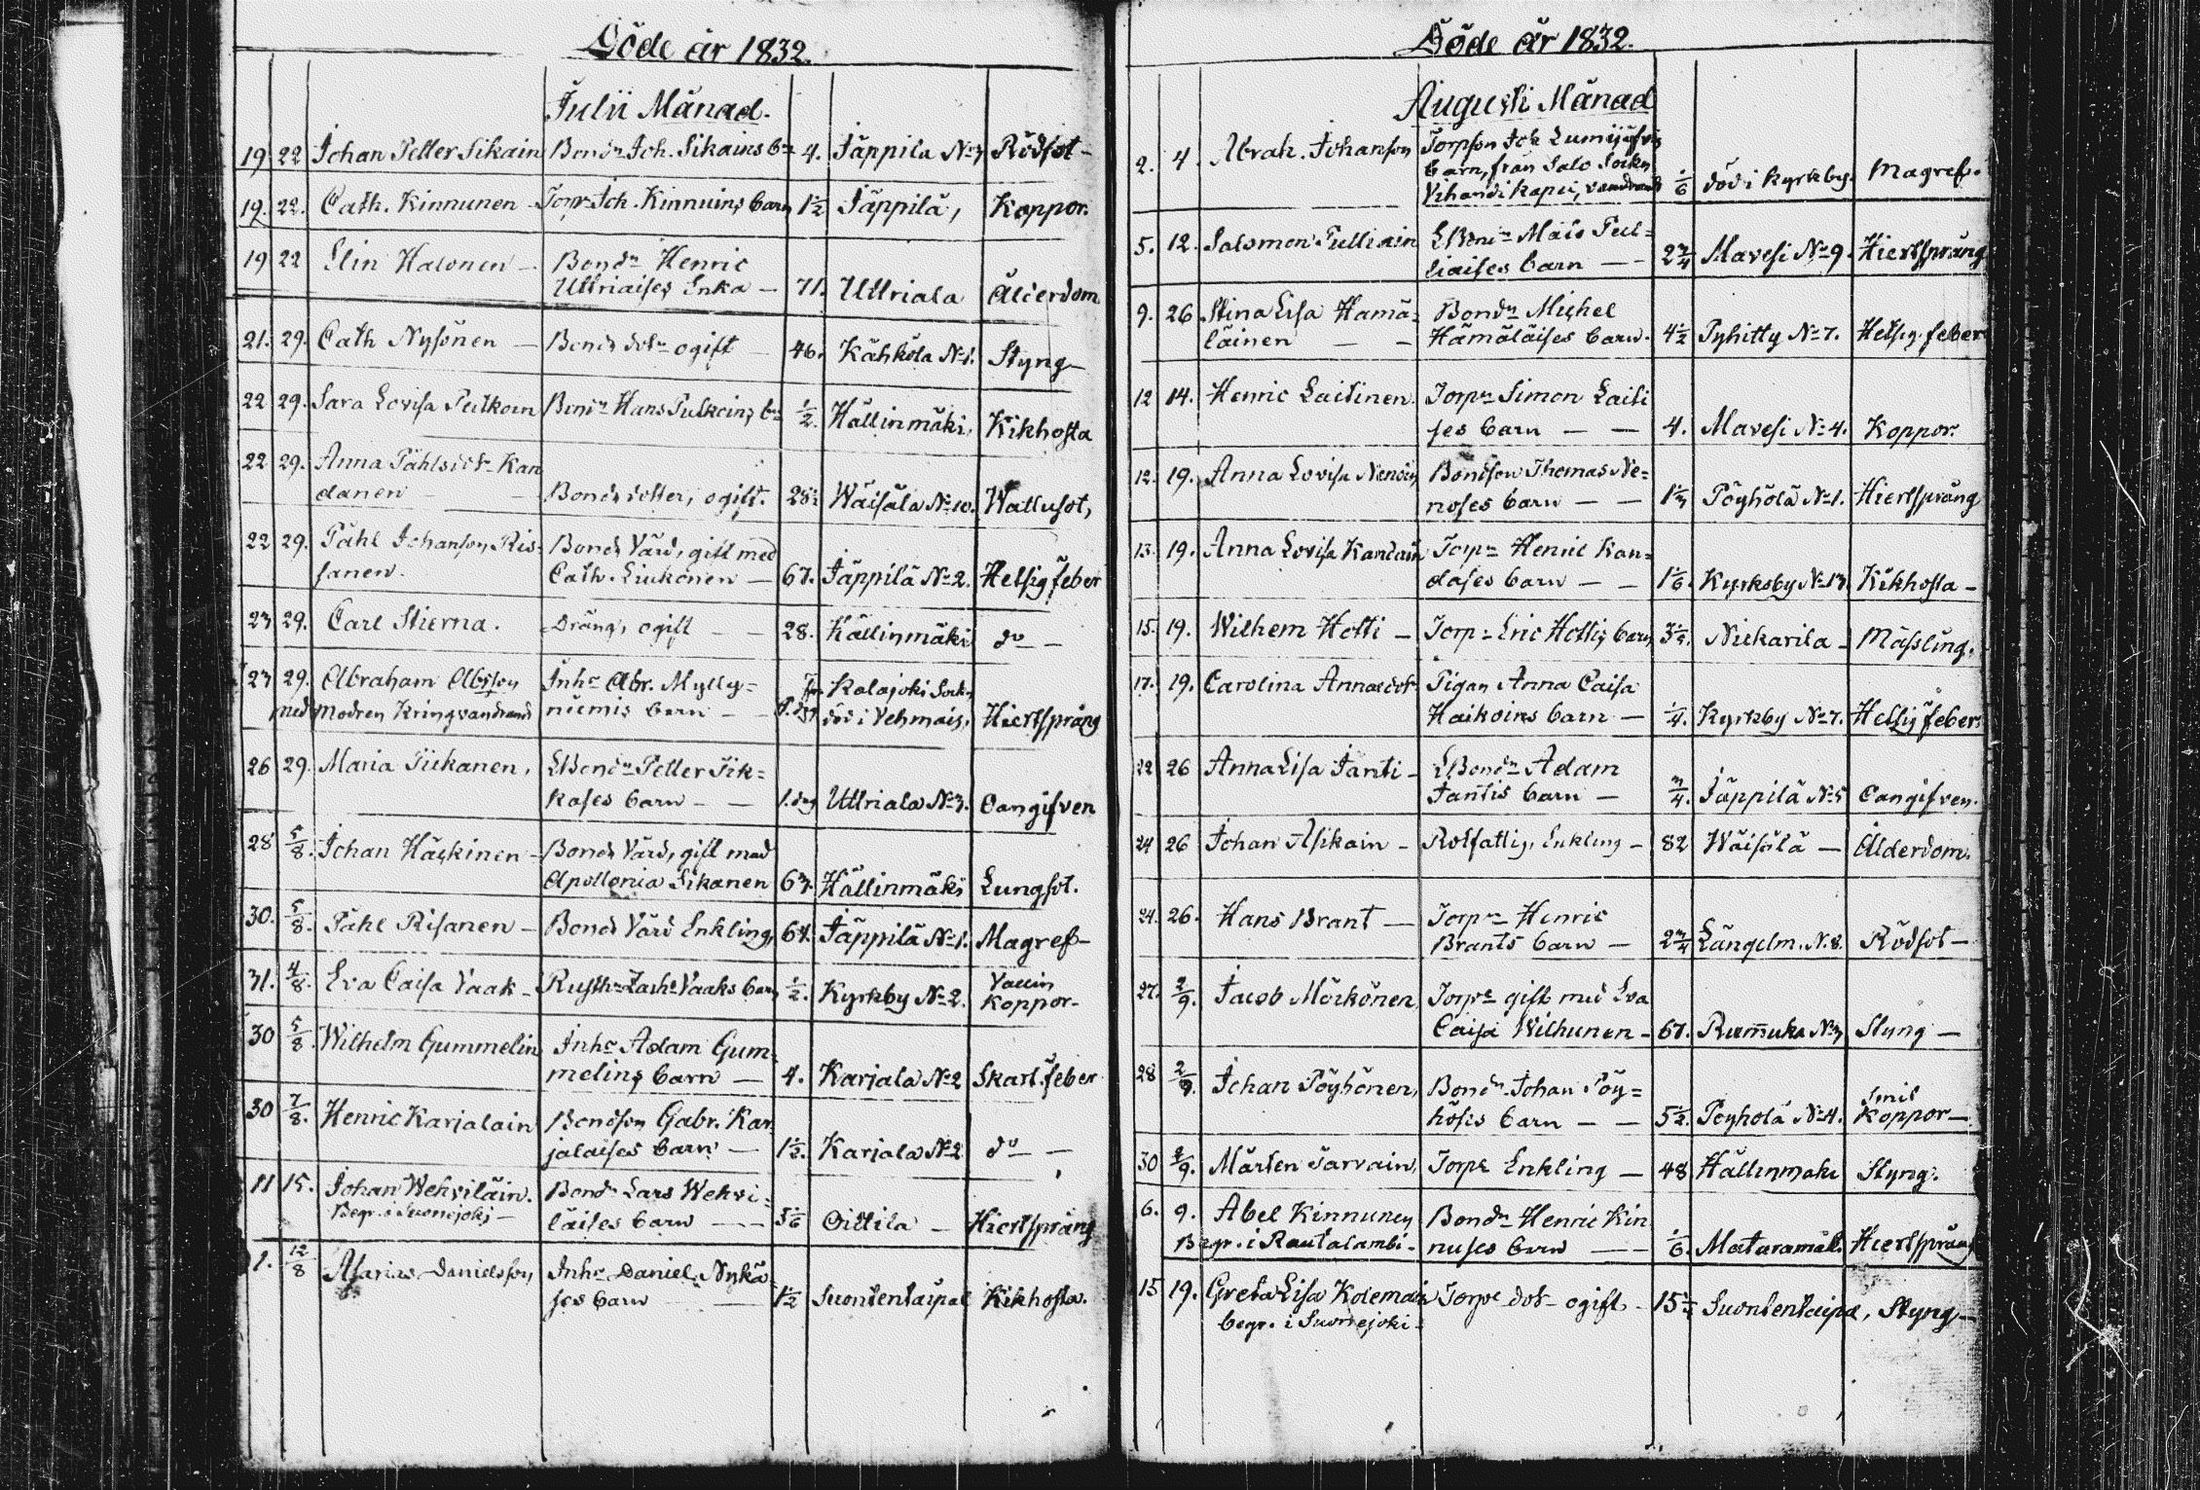 Döde år 1832.
Julii Månad.
19 22 Johan Petter Sikain Bondn Joh. Sikains bn 4. Jäppilä No 3 Rödsot
19. 22. Cath. Kinnunen Torpr Joh. Kinnuins barn 1½ Jäppilä, Koppor.
19 22 Elin Halonen Bondn Henric
Uttriaises Enka 71. Uttriala Ålderdom
21. 29. Cath Nysönen Bonds dotr ogift 46. Kähkölä No 1. Styng
22 29. Sara Lovisa Pulkoin Bondn Hans Pulkoins bn ½. Hällinmäki, Kikhosta
22 29. Anna Påhlsdotr Kan
danen Bonds dotter, ogift. 28½ Wäisälä No 10. Wattusot,
22 29. Påhl Johanson Ris=
sanen. Bonds Värd, gift med
Cath. Liukonen 67. Jäppilä No 2. Hetsig feber
23 29. Carl Stierna. Dräng, ogift 28. Hällinmäki do
23 29. Abraham Abrson Inhr Abr. Mylly=
med Modren Kringvandrand niemis barn Kalajoki Sockn
död i Vehmais, Hiertsprång
26 29. Maria Tiikanen, LBondn Petter Tik=
kases barn 1. dag Uttriala No 3. Oangifven
28 5/8. Johan Häckinen Bonds Värd, gift med
Apollonia Sikanen 63. Hällinmäki Lungsot.
30. 5/8. Påhl Risanen Bonds Värd Enkling, 67. Jäppilä No 1. Magref
31. 4/8. Eva Caisa Vaak Rusthr Zachr Vaaks barn ½. Kyrkby No 2. Vatten
Koppor
30 5/8. Wilhelm Gummelin Inhr Adam Gum=
melins barn 4. Karjala No 2 Skarl. feber
30 7/8. Henric Karjalain Bondson Gabr. Kar
jalaises barn 1½. Karjala No 2 do
11 15. Johan Wehviläin. Bondn Lars Wehvi=
Begr. i Suonejoki läises barn 5/6 Oittila Hiertsprång
1. 12/8 Danielsson Inhr Daniel Nykä
ses barn 1½ Suontentaipal Kikhosta.
Döde år 1832.
Augusti Månad
2. 4. Abrah. Johanson Torpson Joh Lumijärfvis
barn, från Salo Sockn
Vihandi kapel, vandrand 1/6 död i kyrkby. Magref.
5. 12. Salomon Pulliain LBondn Måns Pul=
liaises barn 2¾ Mavesi No 9. Hiertsprång
9. 26 Stina Lisa Hämä= Bondn Michel
läinen Hämäläises barn. 4½ Pyhitty No 7. Hetsig feber
12 14. Henric Laitinen. Torpr Simon Laiti
ses barn 4. Mavesi No 4. Koppor.
12. 19. Anna Lovisa Nenoin Bondson Thomas Ne=
noses barn 1⅓ Pöyhölä No 1. Hiertsprång
13. 19. Anna Lovisa Kandain Torpr Henric Kan=
dases barn 1/6. Kyrkoby No 13 Kikhosta
15. 19. Wilhem Hotti Torpr Eric Hottis barn 3½. Niskarila Mässling.
17. 19. Carolina Annasdotr Pigan Anna Caisa
Haikoins barn ¼. Kyrkby No 7. Hetsig feber.
22 26 Anna Lisa Janti LBondn Adam
Jantis barn ¾. Jäppilä No 5 Oangifven.
24 26 Johan Asikain Rotfattig, Enkling 82 Wäisälä Ålderdom.
24. 26. Hans Brant Torpr Henric
Brants barn 2¾ Längelm. No 8. Rödsot
27. 2/9. Jacob Mörkönen, Torpr gift med Eva
Caisa Wilhunen 67. Rummuka No 3 Styng
28 2/9. Johan Pöyhönen, Bondn Johan Pöy=
höses barn 5½. Pöyhölä No 4. Smit
Koppor
30 2/9. Mårten Tarvain, Torpr Enkling 48 Hällinmäki Styng.
6. 9. Abel Kinnunen Bondn Henric Kin
Begr. i Rautalambi nuses barn 1/6. Mataramäki Hiertsprång
15 19. Greta Lisa Kolemain Torpr dotr ogift 15½ Suontentaipal, Styng,
begr. i Suonejoki